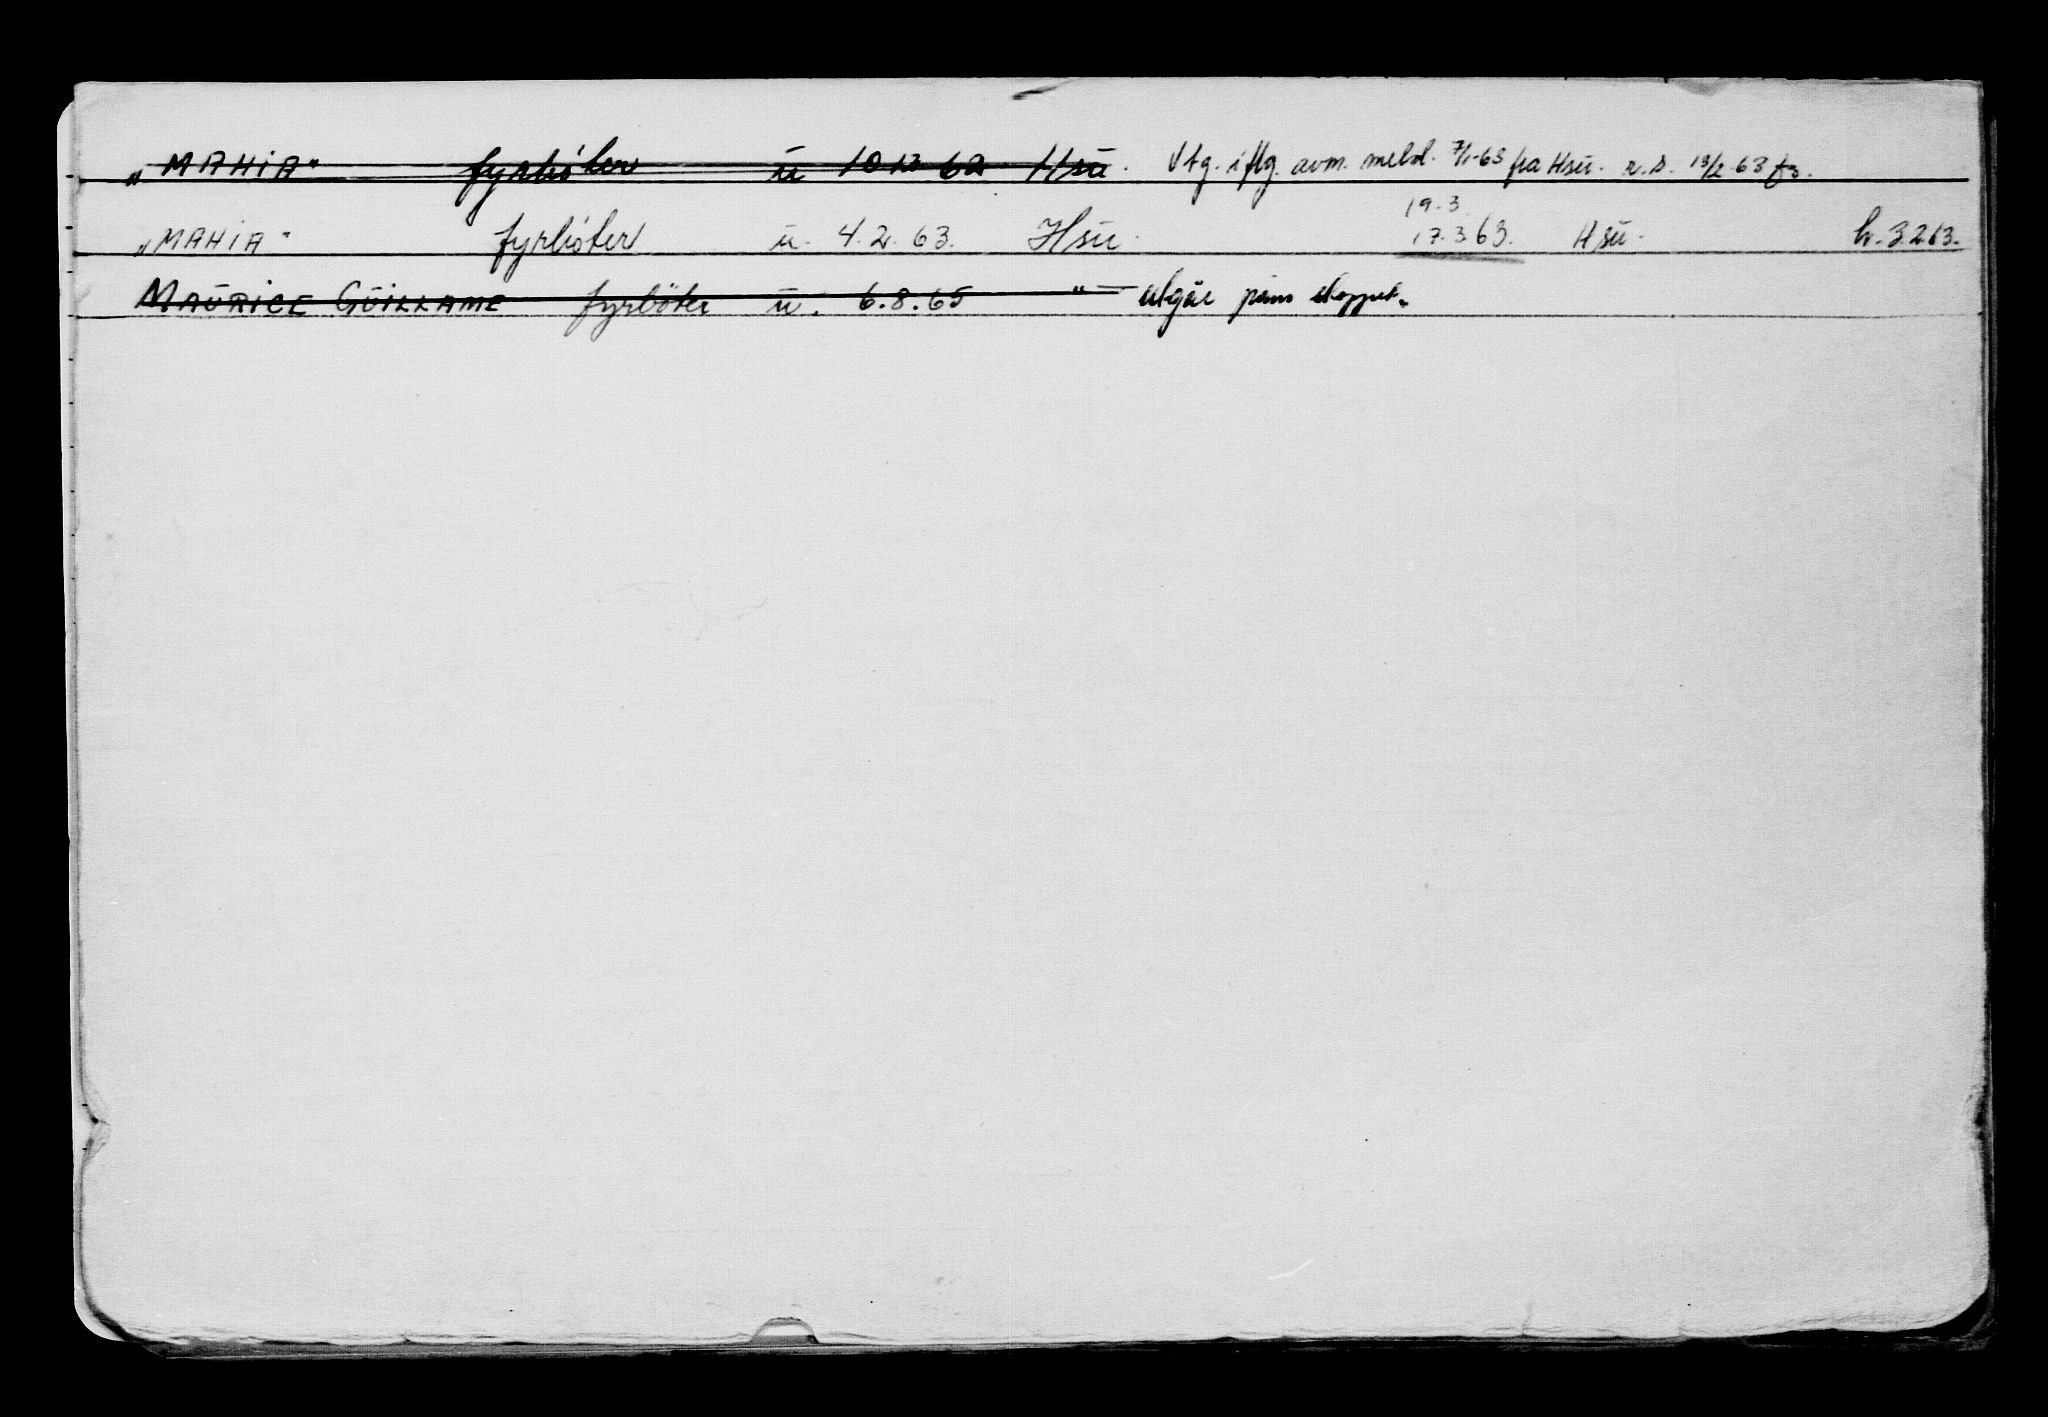 „MAHIA" fyrböter u 10 12 62 Hsu. Utg. iflg. avm. meld. 7/1-63 fra Hsu. r.s. 13/2-63
19.3.
„MAHIA" fyrböter u. 4.2.63. Hsu. 17.3.63. Hsu.
MAURICE GUILLAME fyrböter u. 6.8.65 " — utgår pass stoppet.